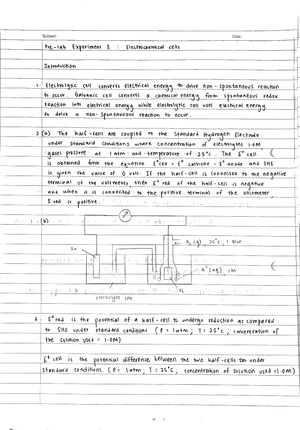 Subject : Date:
Pre-lab Experiment 3 : Electrochemical cells
Introduction
1. Electrolytic cell converts electrical energy to drive non-spontaneous reaction
to occur. Galvanic cell converts a chemical energy from spontaneous redox
reaction into electrical energy while electrolytic cell uses electrical energy
to drive a non-spontaneous reaction to occur.
2 (a) The half-cells are coupled to the Standard Hydrogen Electrode
under standard conditions where concentration of electrolytes 1.0M
gases pressure at 1 atm and temperature of 25°C. The E° cell
is obtained from the equation E°cell = E° cathode - E° anode and SHE
is given the value of 0 volt. If the half-cell is connected to the negative
terminal of the voltmeter, then E° red of the half-cell is negative
and when it is connected to the positive terminal of the voltmeter,
E red is positive.
(b)
H₂ (g), 25°C, 1 atm
H⁺ (aq) 1M
electrolyte 1M
3. E° red is the potential of a half-cell to undergo reduction as compared
to SHE under standard conditions (P = 1 atm ; T = 25°C ; concentration of
the solution used = 1.0M)
E° cell is the potential difference between the two half-cells under
standard conditions (P = 1 atm ; T = 25°C ; concentration of solution used = 1.0M)